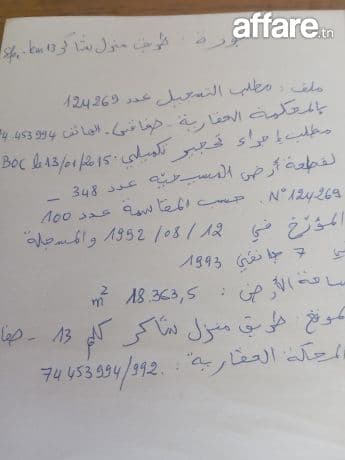 affare.tn
ورة : طريق منزل شاكر km 13 -
ملف : مطلب التسجيل عدد 124269
بالمحكمة العقارية - صفاقس - الهاتف 74.453994
مطلب إجراء تحجير تكميلي BOC le 13/01/2015
لقطعة أرض المسيحية عدد 348 -
N° 124269 حسب المقاسمة عدد 100
المؤرخ في 12 / 08 / 1992 والمسجلة
7 جانفي 1993
ساحة الأرض : 18.363,5 m²
موقع : طريق منزل شاكر كلم 13 - صفا
المحكمة العقارية : 74 453994/992